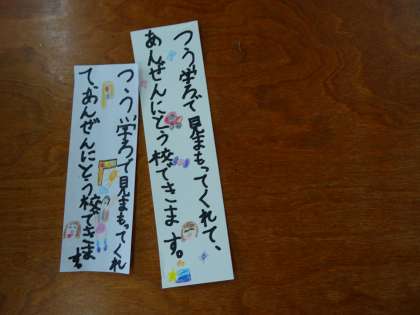 つう学ろで見まもってくれて、
あんぜんにとう校できます。
つう学ろで見まもってくれ
て、あんぜんにとう校できます。